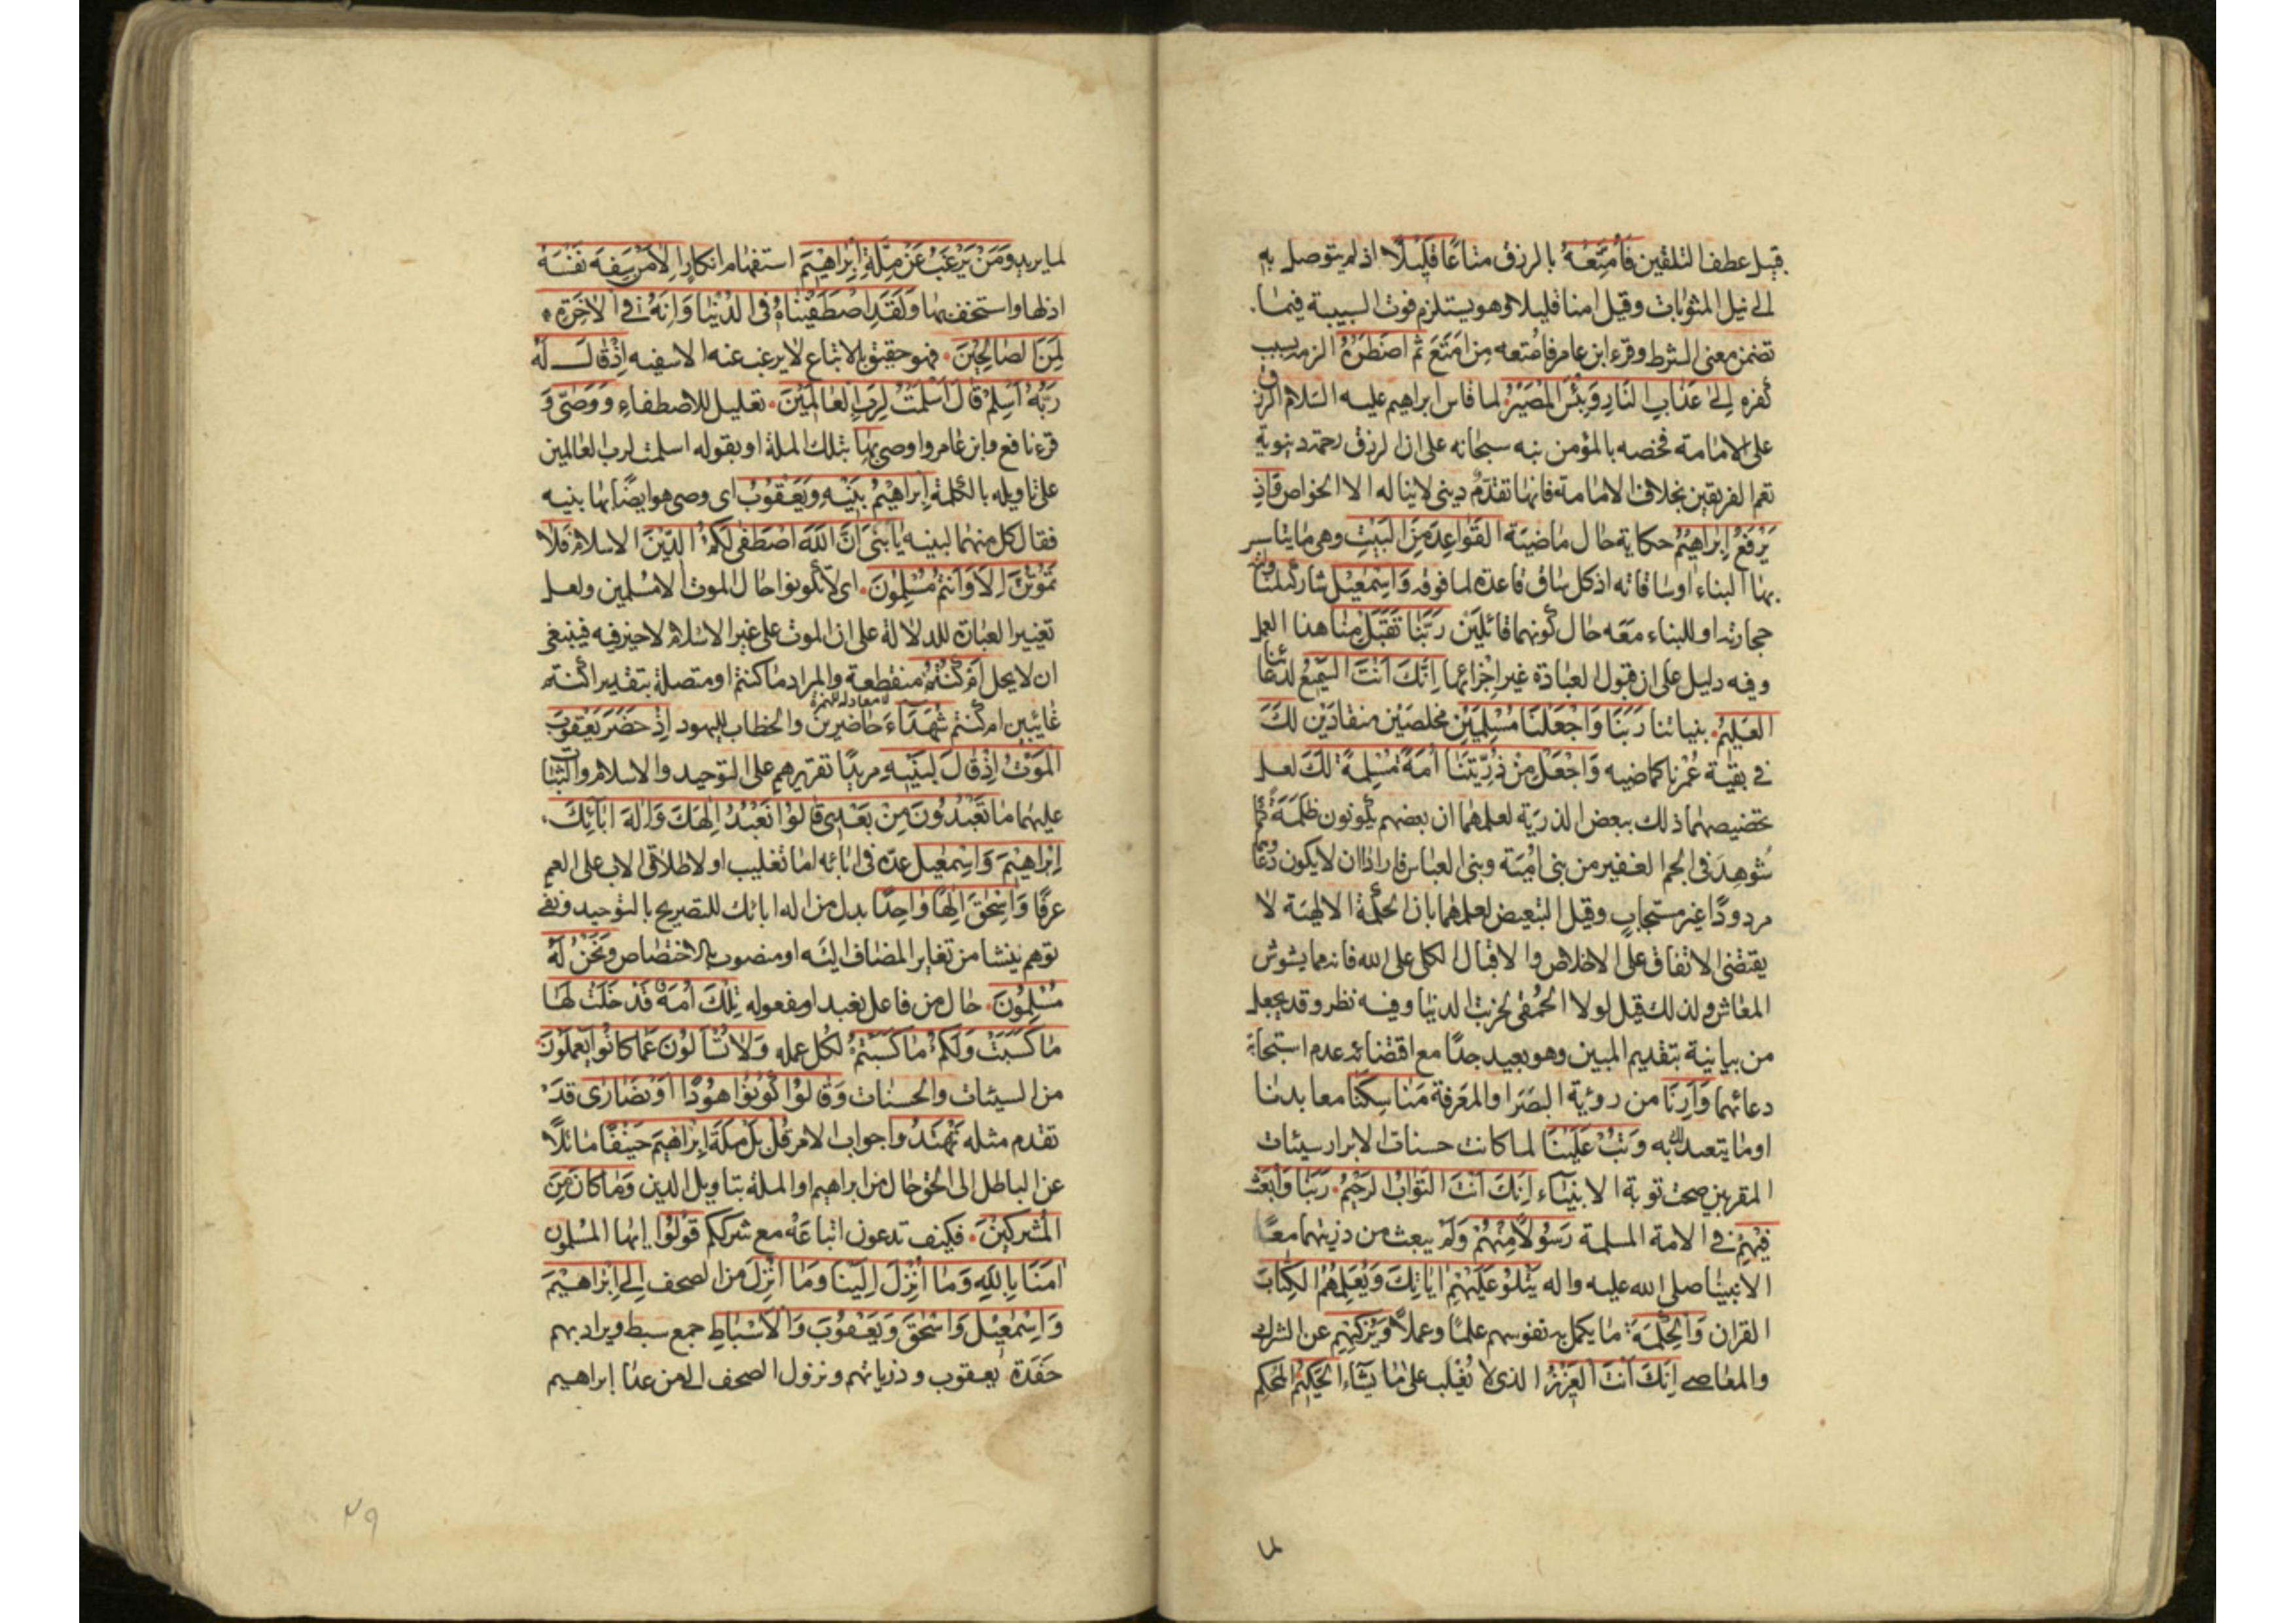 قيل عطف التلقين فَأُمَتِّعُهُ بالرزق متاعًا قَلِيلًا اذ لم يتوصل به
الى نيل المثوبات وقيل امنا قليلا وهو يستلزم فوت السببية فيما
تضمن معنى الشرط وقرء ابن عامر فامتعه من امتع ثُمَّ اضْطَرُّهُ الزه بسبب
كفره اِلىٰ عَذَابِ النَّارِ وَبِئْسَ الْمَصِيْرُ لما قاس ابراهيم عليه السلام الرزق
على الامامة فخصه بالمؤمن نبه سبحانه على ان الرزق رحمة دنيوية
تعم الفريقين بخلاف الامامة فانها تقدّم ديني لا يناله الا الخواص وَاِذْ
يَرْفَعُ اِبْرَاهِيْمُ حكاية حال ماضية الْقَوَاعِدَ مِنَ الْبَيْتِ وهي ما يتاسس
بها البناء او ساقاته اذ كل ساق قاعدة لما فوقه وَاِسْمٰعِيْلُ شاركه بمناولته
حجارته او للبناء معه حال كونهما قائلين رَبَّنَا تَقَبَّلْ مِنَّا هذا العمل
وفيه دليل على ان قبول العبادة غير اجزائها اِنَّكَ اَنْتَ السَّمِيْعُ لدعائنا
الْعَلِيْمُ بنياتنا رَبَّنَا وَاجْعَلْنَا مُسْلِمَيْنِ مخلصين منقادين لَكَ
في بقية عُمْرنا كما ضيه وَاجْعَلْ مِنْ ذُرِّيَّتِنَا اُمَّةً مُسْلِمَةً لَكَ لعل
تخصيصهما ذلك ببعض الذرية لعلمهما ان بعضهم يكونون ظلمة كما
شُوهِدَ في الجم الغفير من بني اميّة وبني العباس فارادا ان لا يكون دعاؤهما
مردودًا غير مستجاب وقيل التبعيض لعلمهما بان الحكمة الالهية لا
يقتضى الاتفاق على الاخلاص والاقبال الكلى على الله فانه مما يشوش
المعاش ولذلك قيل لولا الحمقى لخربت الدنيا وفيه نظر وقد يجعل
من بيانية بتقديم المبين وهو بعيد جدًا مع اقتضائه عدم استجابة
دعائهما وَاَرِنَا من رؤية البصر او المعرفة مَنَاسِكَنَا معابدنا
او ما يتعبد لك به وَتُبْ عَلَيْنَا لما كانت حسنات الابرار سيئات
المقربين صحت توبة الانبياء اِنَّكَ اَنْتَ التَّوَّابُ الرَّحِيْمُ رَبَّنَا وَابْعَثْ
فِيْهِمْ في الامة المسلمة رَسُوْلًا مِنْهُمْ ولم يبعث من ذريتهما معًا
الا نبينا صلى الله عليه واله يَتْلُوْ عَلَيْهِمْ اٰيَاتِكَ وَيُعَلِّمُهُمُ الْكِتَابَ
القران وَالْحِكْمَةَ ما يكمل به نفوسهم علمًا وعملًا وَيُزَكِّيْهِمْ عن الشرك
والمعاصى اِنَّكَ اَنْتَ الْعَزِيْزُ الذى لا يُغْلَب على ما يشاء الْحَكِيْمُ المحكم
لما
لما يريد وَمَنْ يَرْغَبُ عَنْ مِلَّةِ اِبْرَاهِيْمَ استفهام انكار اِلَّا مَنْ سَفِهَ نَفْسَهُ
اذلها واستخف بها وَلَقَدِ اصْطَفَيْنَاهُ فِى الدُّنْيَا وَاِنَّهُ فِى الْاٰخِرَةِ
لَمِنَ الصَّالِحِيْنَ فهو حقيق بالاتباع لا يرغب عنه الا سفيه اِذْ قَالَ لَهُ
رَبُّهُ اَسْلِمْ قَالَ اَسْلَمْتُ لِرَبِّ الْعَالَمِيْنَ تعليل للاصطفاء وَوَصّٰى و
قرء نافع وابن عامر واوصى بِهَا بتلك الملة او بقوله اسلمت لرب العالمين
على تاويله بالكلمة اِبْرَاهِيْمُ بَنِيْهِ وَيَعْقُوْبُ اى وصى هو ايضًا بها بنيه
فقال كل منهما لبنيه يَا بَنِىَّ اِنَّ اللّٰهَ اصْطَفٰى لَكُمُ الدِّيْنَ الاسلام فَلَا
تَمُوْتُنَّ اِلَّا وَاَنْتُمْ مُسْلِمُوْنَ اى لا تكونوا حال الموت الا مسلمين ولعل
تغيير العبارة للدلالة على ان الموت على غير الاسلام لا خير فيه فينبغى
ان لا يحل اَمْ كُنْتُمْ منقطعة والمراد ما كنتم او متصلة بتقدير اكنتم
معادلة للهمزة
غائبين ام كنتم شُهَدَاءَ حاضرين والخطاب لليهود اِذْ حَضَرَ يَعْقُوْبَ
الْمَوْتُ اِذْ قَالَ لِبَنِيْهِ مريدًا تقريرهم على التوحيد والاسلام والثبات
عليهما مَا تَعْبُدُوْنَ مِنْ بَعْدِىْ قَالُوْا نَعْبُدُ اِلٰهَكَ وَاِلٰهَ اٰبَائِكَ
اِبْرَاهِيْمَ وَاِسْمٰعِيْلَ عدّه في ابائه اما تغليب او لاطلاق الاب على العم
عرفًا وَاِسْحٰقَ اِلٰهًا وَاحِدًا بدل من اله ابائك للتصريح بالتوحيد ونفى
توهم ينشا من تغاير المضاف اليه او منصوب بالاختصاص وَنَحْنُ لَهُ
مُسْلِمُوْنَ حال من فاعل نعبد او مفعوله تِلْكَ اُمَّةٌ قَدْ خَلَتْ لَهَا
مَا كَسَبَتْ وَلَكُمْ مَا كَسَبْتُمْ لكل عمله وَلَا تُسْئَلُوْنَ عَمَّا كَانُوْا يَعْمَلُوْنَ
من السيئات والحسنات وَقَالُوْا كُوْنُوْا هُوْدًا اَوْ نَصَارٰى قد
تقدم مثله تَهْتَدُوْا جواب الامر قُلْ بَلْ مِلَّةَ اِبْرَاهِيْمَ حَنِيْفًا مائلًا
عن الباطل الى الحق حال من ابراهيم او الملة بتاويل الدين وَمَا كَانَ مِنَ
الْمُشْرِكِيْنَ فكيف تدعون اتباعه مع شرككم قُوْلُوْا ايها المسلمون
اٰمَنَّا بِاللّٰهِ وَمَا اُنْزِلَ اِلَيْنَا وَمَا اُنْزِلَ من الصحف اِلٰى اِبْرَاهِيْمَ
وَاِسْمٰعِيْلَ وَاِسْحٰقَ وَيَعْقُوْبَ وَالْاَسْبَاطِ جمع سبط ويراد بهم
حَفَدَة يعقوب وذرياتهم ونزول الصحف الى من عدا ابراهيم